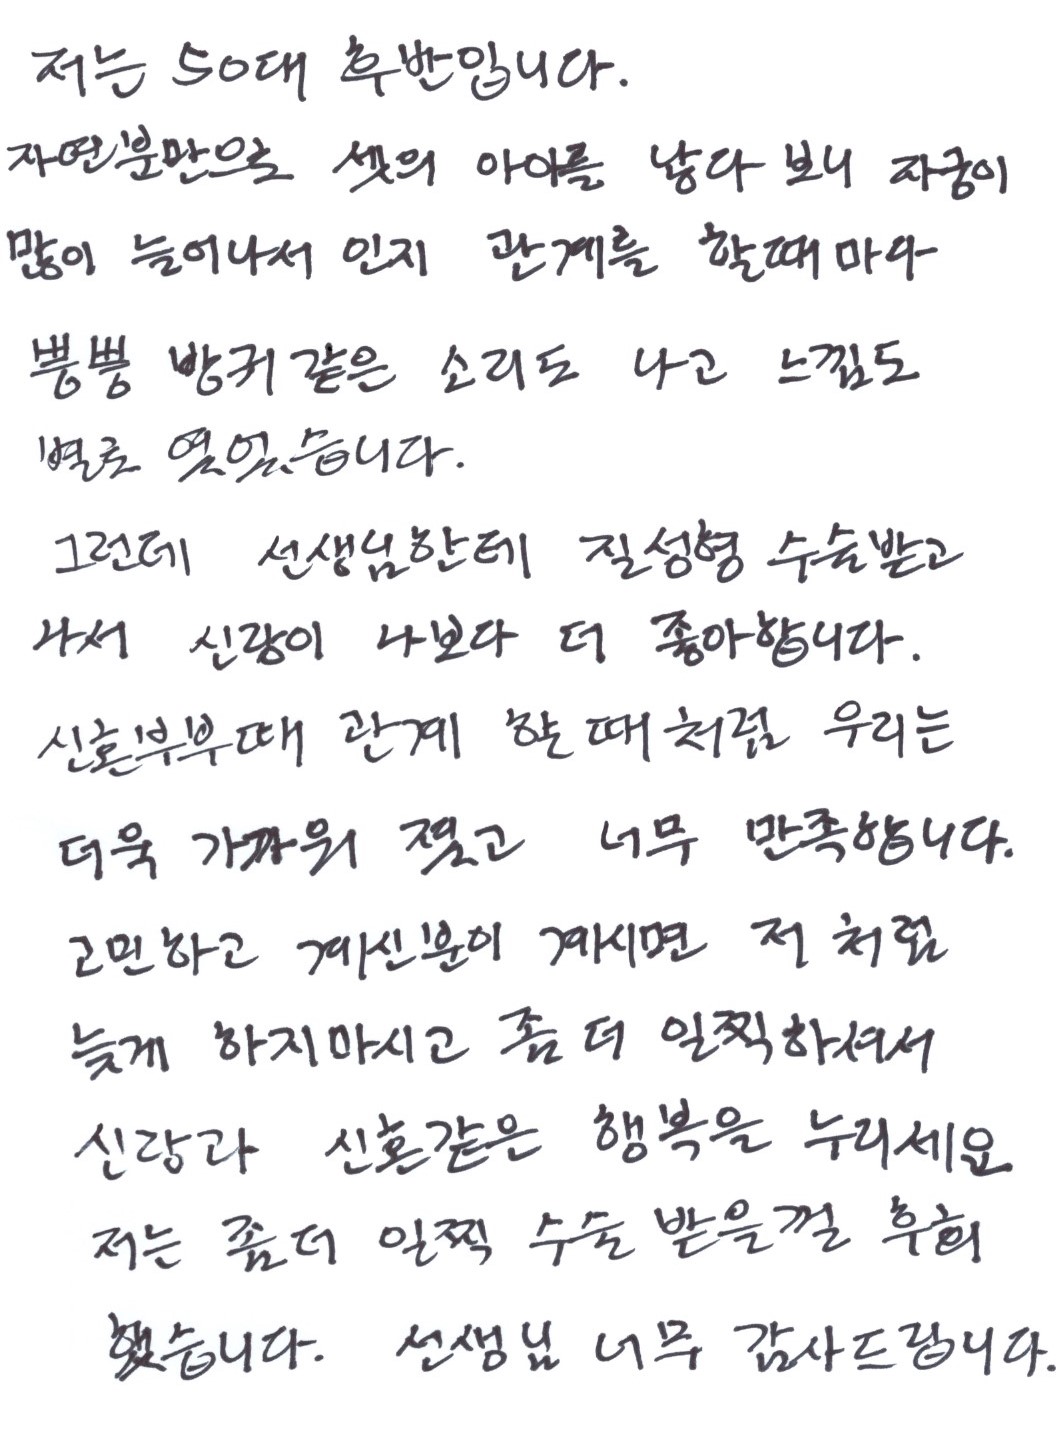 저는 50대 후반입니다.
자연분만으로 셋의 아이를 낳다 보니 자궁이
많이 늘어나서 인지 관계를 할때 마다
뿡뿡 방귀 같은 소리도 나고 느낌도
별로 없었습니다.
그런데 선생님한테 질성형 수술받고
나서 신랑이 나보다 더 좋아합니다.
신혼부부때 관계 할 때 처럼 우리는
더욱 가까워 졌고 너무 만족합니다.
고민하고 계신분이 계시면 저 처럼
늦게 하지마시고 좀 더 일찍하셔서
신랑과 신혼같은 행복을 누리세요
저는 좀더 일찍 수술 받을껄 후회
했습니다. 선생님 너무 감사드립니다.